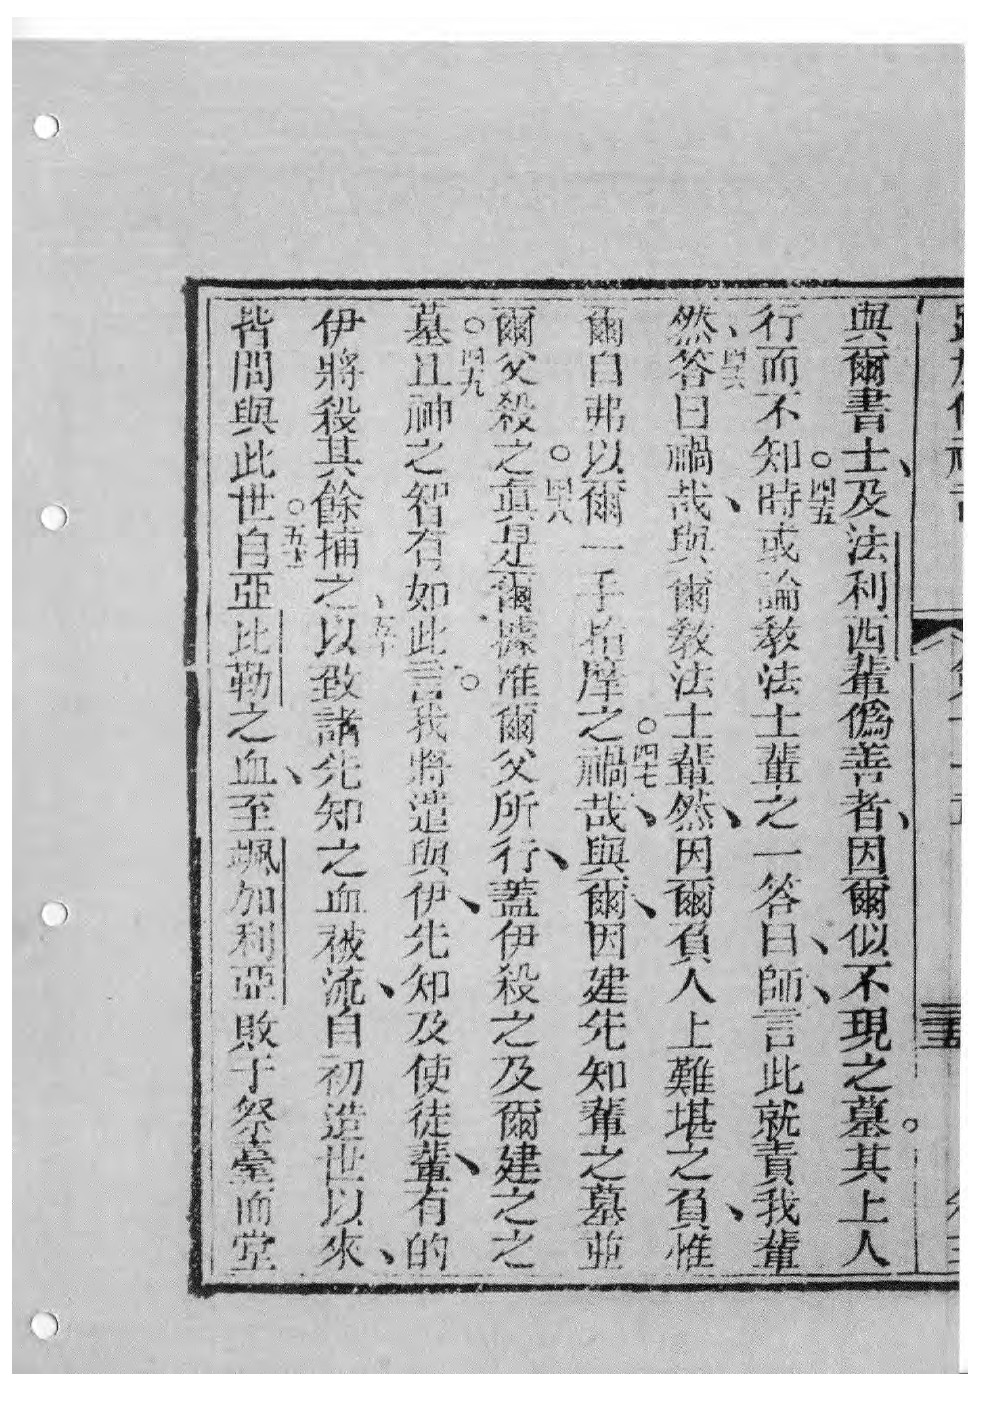 與爾書士、及法利西輩僞善者、因爾似不現之墓。其上人
行而不知時。四五或論敎法士輩之一答曰、師、言此就責我輩
然、四六答曰禍哉、與爾敎法士輩、然因爾負人上難堪之負、惟
爾自弗以爾一手指摩之。四七禍哉、與爾、因建先知輩之墓並
爾父殺之。四八眞是爾據准爾父所行、蓋伊殺之及爾建之之
墓。四九且神之智有如此言。我將遣與伊、先知及使徒輩、有的
伊將殺其餘捕之、五十以致諸先知之血被流、自初造世以來、
皆問與此世。五一自亞比勒之血、至颯加利亞敗于祭臺而堂